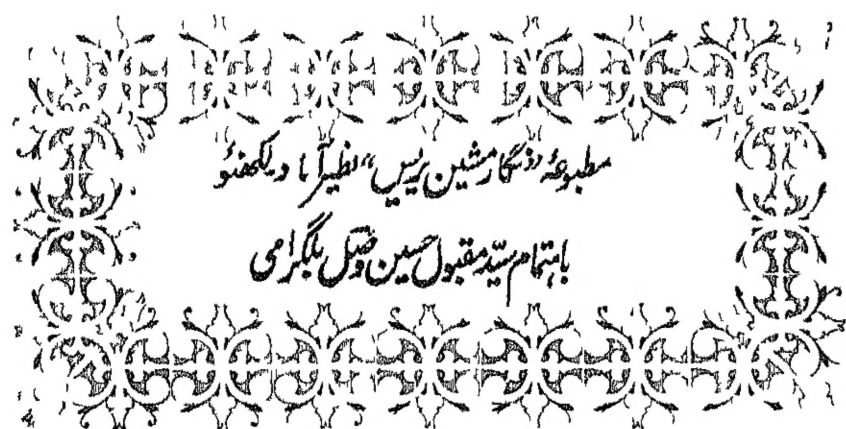 مطبوعہ "نگار مشین پریس" نظیرآباد۔ لکھنؤ
باہتمام سیّد مقبول حسین وصل بلگرامی